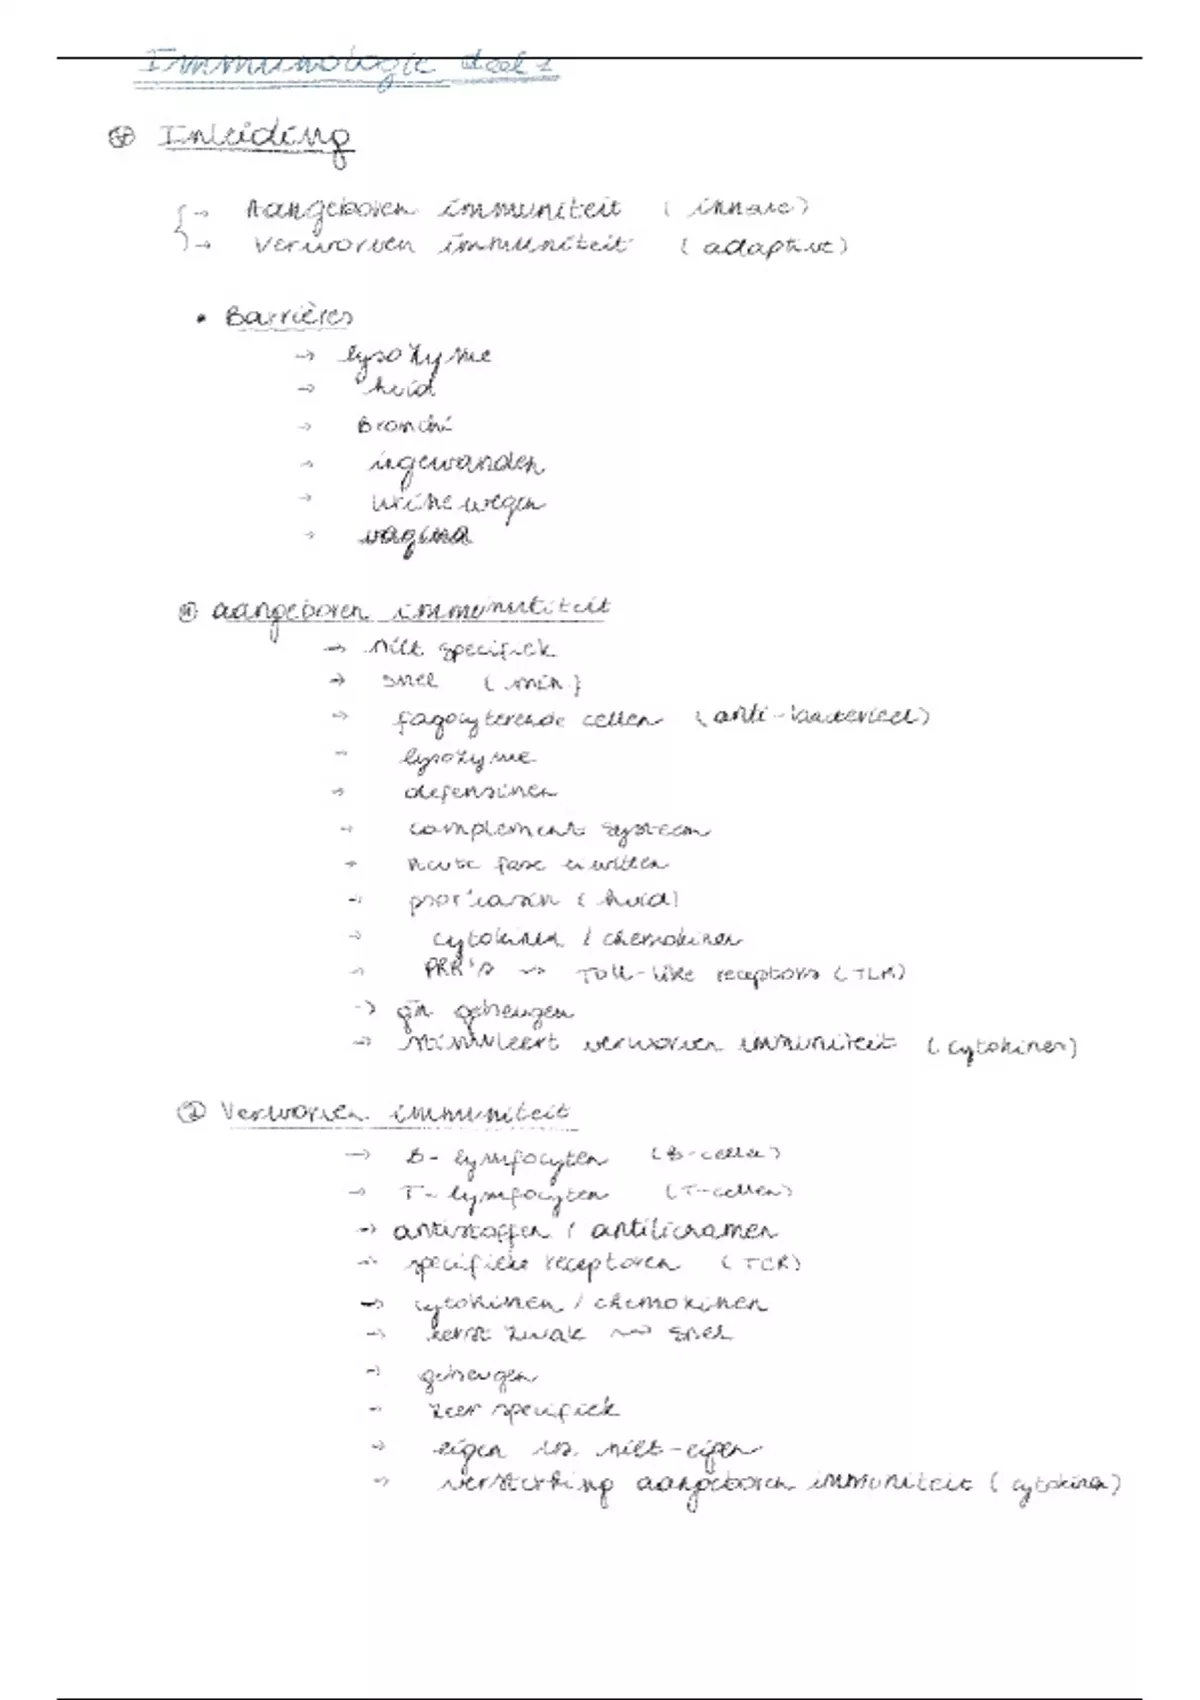 Immunologie deel 1
Inleiding
→ Aangeboren immuniteit (innate)
→ Verworven immuniteit (adaptive)
• Barrières
→ lysozyme
→ huid
→ Bronchi
→ ingewanden
→ urinewegen
→ vagina
① aangeboren immunutiteit
→ niet specifiek
→ snel (min)
→ fagocyterende cellen (anti-bacterieel)
→ lysozyme
→ defensinen
→ complement systeem
→ Acute fase eiwitten
→ psoriasin (huid)
→ cytokinen / chemokinen
→ PRR's → Toll-like receptors (TLR)
→ gn geheugen
→ stimuleert verworven immuniteit (cytokines)
② Verworven immuniteit
→ B-lymfocyten (B-cellen)
→ T-lymfocyten (T-cellen)
→ antistoffen / antilichamen
→ specifieke receptoren (TCR)
→ cytokinen / chemokinen
→ eerst zwak → snel
→ geheugen
→ zeer specifiek
→ eigen vs. niet-eigen
→ versterking aangeboren immuniteit (cytokinen)